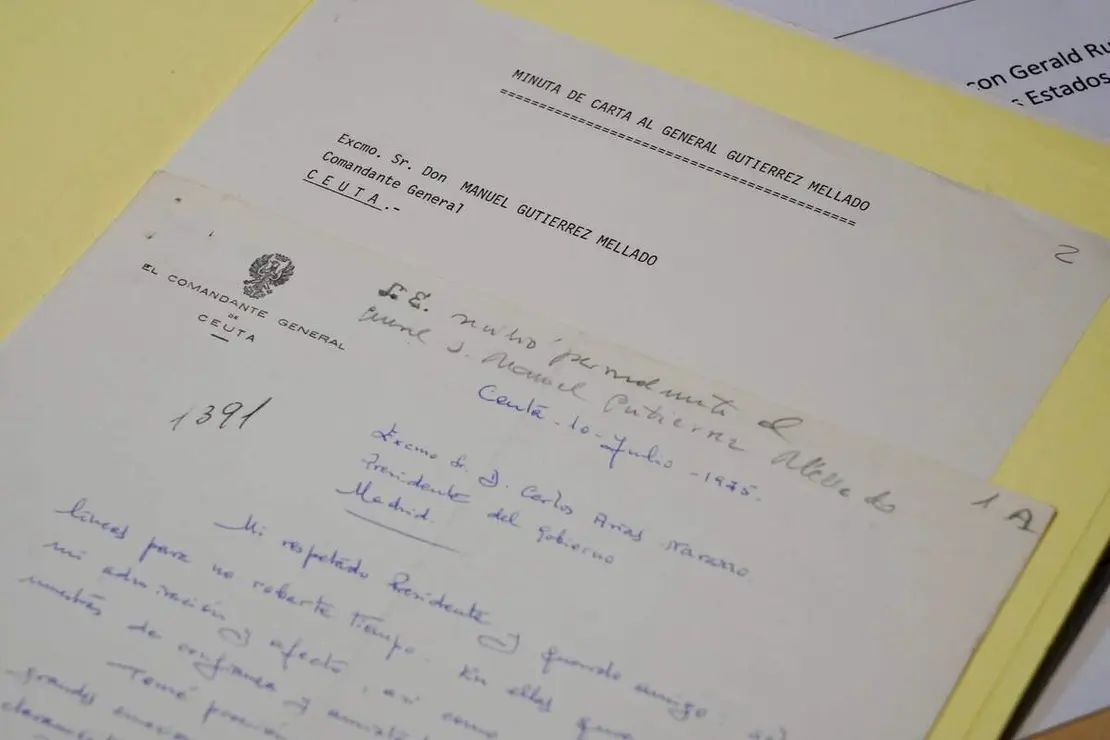 con Gerald Ru
s Estados
MINUTA DE CARTA AL GENERAL GUTIERREZ MELLADO
================================================
2
Excmo. Sr. Don MANUEL GUTIERREZ MELLADO
Comandante General
C E U T A .-
EL COMANDANTE GENERAL
DE
CEUTA
S.E. recibió personalmente al
General D. Manuel Gutierrez Mellado
1391
1 A
Ceuta - 10 - Julio - 1975.
Excmo Sr. D. Carlos Arias Navarro
Presidente del Gobierno
Madrid.
Mi respetado Presidente y querido amigo:
líneas para no robarte tiempo. En ellas
mi admiración y afecto, así como
muestras de confianza y
Tomé
grandes